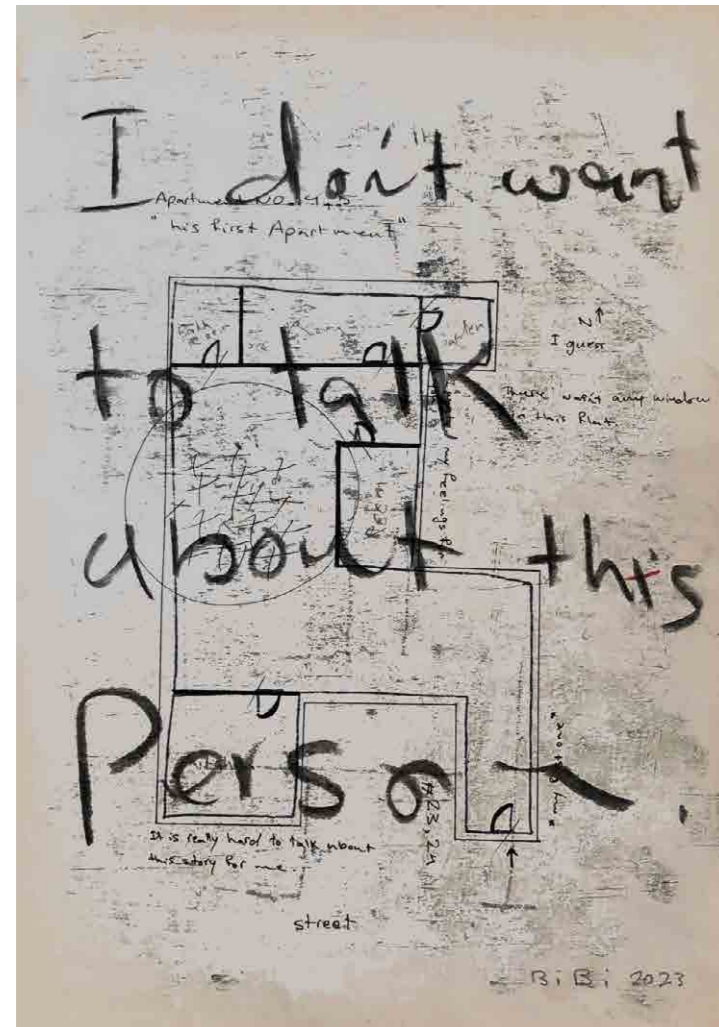 I don't want
Apartment NO.
"his first Apartment"
N
I guess
to talk
There wasn't any window
in this flat.
my feelings
about this
Person.
#23,24
It is really hard to talk about
this story for me...
street
BiBi 2023